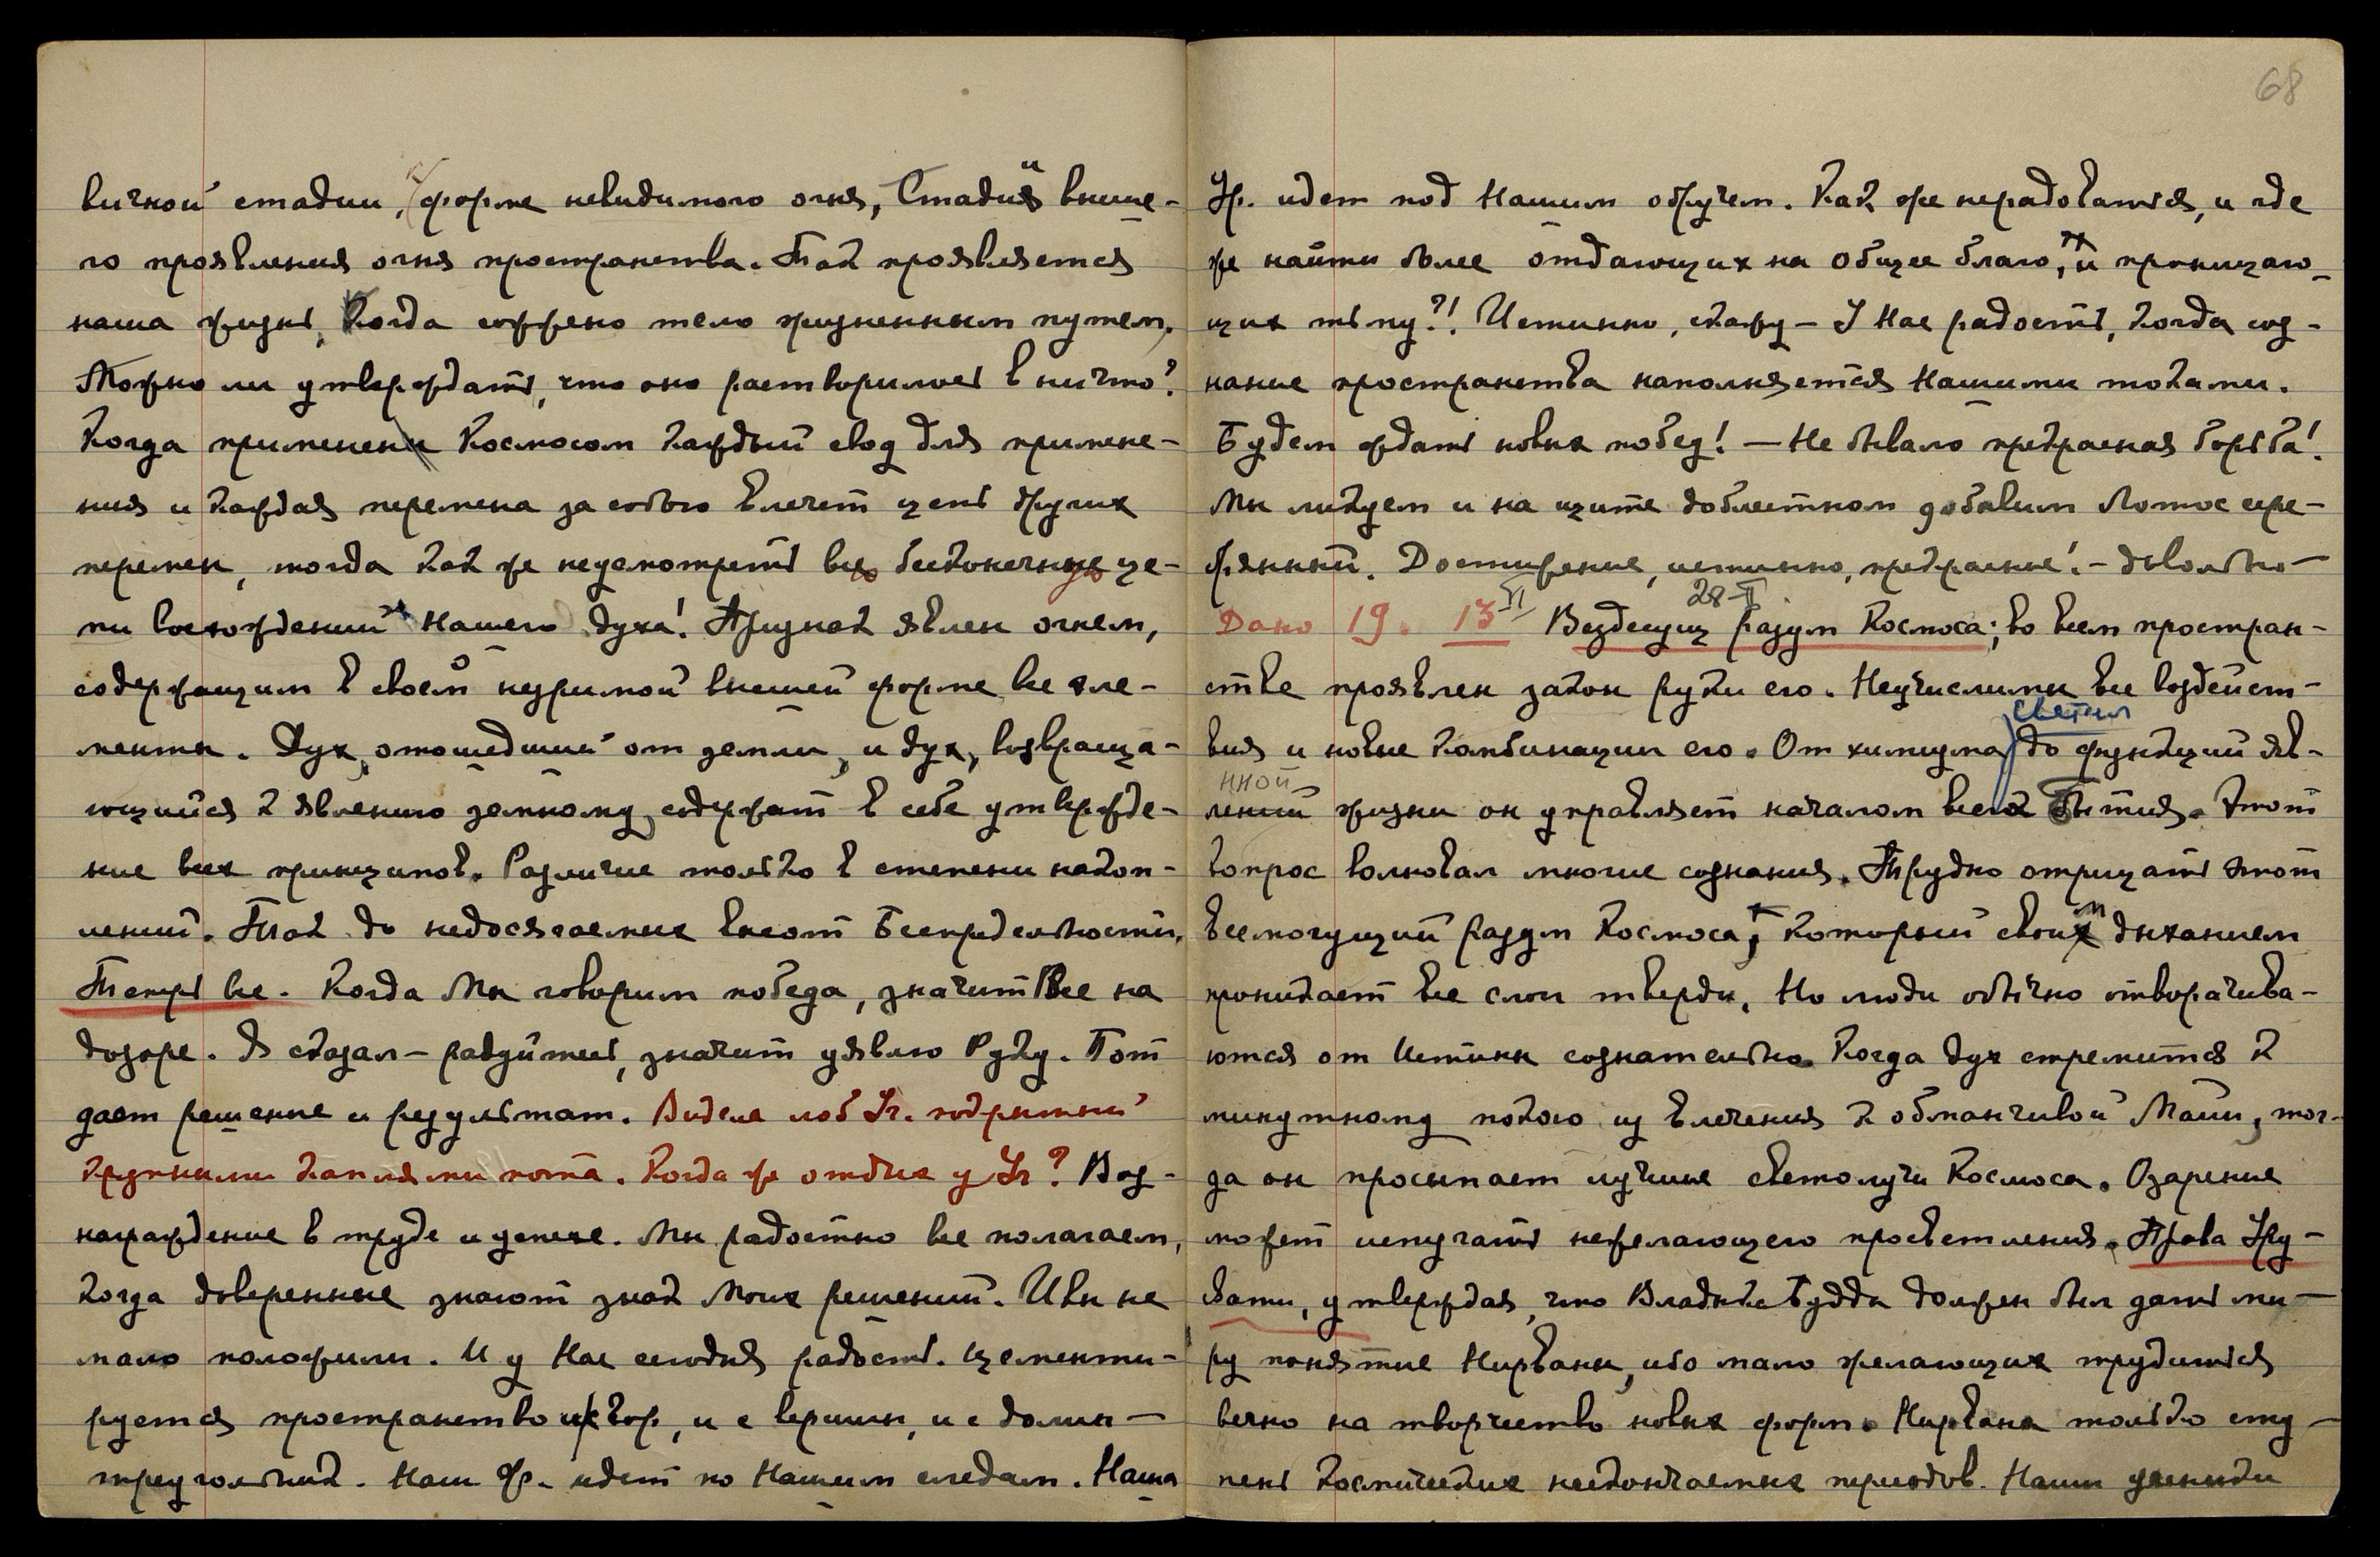 вичной стадии, форме невидимого огня, Стадии внешне-
го проявления огня пространства. Так проявляется
наша жизнь, Когда сожжено тело жизненным путем,
Можно ли утверждать, что оно растворилось в ничто?
Когда применен Космосом каждый свод для примене-
ния и каждая перемена за собою влечет цепь других
перемен, тогда как же неусмотреть всю бесконечную це-
пи восхождений Нашего духа! Признак явлен огнем,
содержащим в своей незримой внешней форме все эле-
менты. Дух, отошедший от земли, и дух, возвраща-
ющийся к явлению земному, содержат в себе утвержде-
ние всех принципов. Различие только в степени накоп-
лений. Так до недосягаемых высот Беспредельности.
Теперь все. Когда Мы говорим победа, значит Все на
дозоре. Я сказал – радуйтесь, значит уявлю Руку. Тот
дает решение и результат. Видела лоб Ур. покрытый
крупными каплями пота. Когда же отдых у Ур? Воз-
награждение в труде и успехе. Мы радостно все полагаем,
когда доверенные знают знак Моих решений. И вы не
мало положили. И у Нас сегодня радость. Цементи-
руется пространство и с гор, и с вершин, и с долин –
треугольник. Наш Ф. идет по Нашим следам. Наша
68
Ур. идет под Нашим обручем. Как же нерадоваться, и где
же найти более отдающих на Общее благо, и проницаю-
щих тьму?! Истинно, скажу – У Нас радость, когда соз-
нание пространства наполняется Нашими токами.
Будем ждать новых побед! – Не бывало прекрасная борьба!
Мы ликуем и на щите доблестном добавим Лотос сере-
бряный. Достижение, истинно, прекрасное! – довольно –
Дано 19. 13 VI 28 II Вездесущ разум Космоса; во всем простран-
стве проявлен закон руки его. Неучислимы все воздейст-
вия и новые комбинации его. От химизма светил до функций яв-
ленной жизни он управляет началом всего Бытия. Этот
вопрос волновал многие сознания. Трудно отрицать этот
всемогущий разум Космоса, который своим дыханием
проникает все слои тверди. Но люди обычно отворачива-
ются от Истины сознательно. Когда дух стремится к
минутному покою из влечения к обманчивой Майи, тог-
да он просыпает лучшие светолучи Космоса. Озарение
может испугать нежелающего просветления. Права Уру-
свати, утверждая, что Владыка Будда должен был дать ми-
ру понятие Нирваны, ибо мало желающих трудиться
вечно на творчество новых форм. Нирвана только сту-
пень космических нескончаемых периодов. Наши ученики